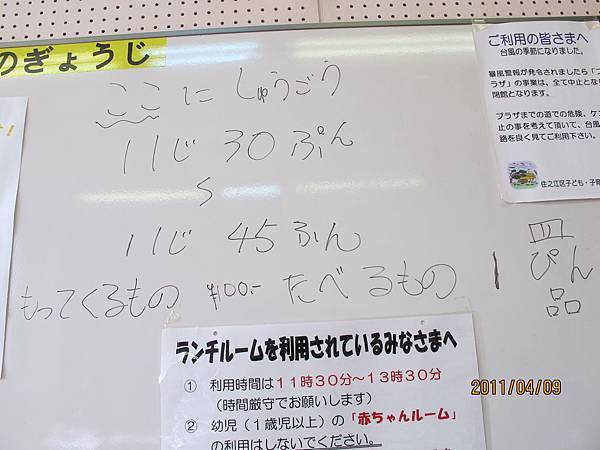 のぎょうじ
ここにしゅうごう
11じ 30ぷん
〜
11じ 45ふん
もってくるもの ¥100- たべるもの
1
皿
ぴん
品
ご利用の皆さまへ
台風の季節になりました。
暴風警報が発令されましたら「プ
ラザ」の事業は、全て中止となり
閉館となります。
プラザまでの道での危険、ケガ
止の事を考えて頂いて、台風
路を良く見てご利用下さい。
住之江区子ども・子育
ランチルームを利用されているみなさまへ
① 利用時間は11時30分〜13時30分
(時間厳守でお願いします)
② 幼児(1歳児以上)の「赤ちゃんルーム」
の利用はしないでください。
2011/04/09